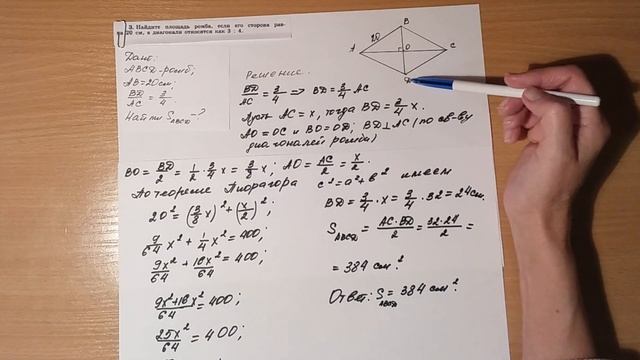 3. Найдите площадь ромба, если его сторона рав-
на 20 см, а диагонали относятся как 3 : 4.
Дано:
ABCD-ромб;
AB=20см;
BD/AC = 3/4.
Найти S_ABCD-?
B
20
A
O
C
Решение.
BD/AC = 3/4 => BD = 3/4 AC
Пусть AC = x, тогда BD = 3/4 x.
AO = OC и BO = OD; BD⊥AC (по св-ву
диагоналей ромба)
BO = BD/2 = 1/2 · 3/4 x = 3/8 x; AO = AC/2 = x/2.
По теореме Пифагора c² = a² + b² имеем
20² = (3/8 x)² + (x/2)²;
9/64 x² + 1/4 x² = 400;
9x²/64 + 16x²/64 = 400;
9x²+16x²/64 = 400;
25x²/64 = 400;
BD = 3/4 · x = 3/4 · 32 = 24 см.
S_ABCD = AC·BD/2 = 32·24/2 =
= 384 см².
Ответ: S_ABCD = 384 см².